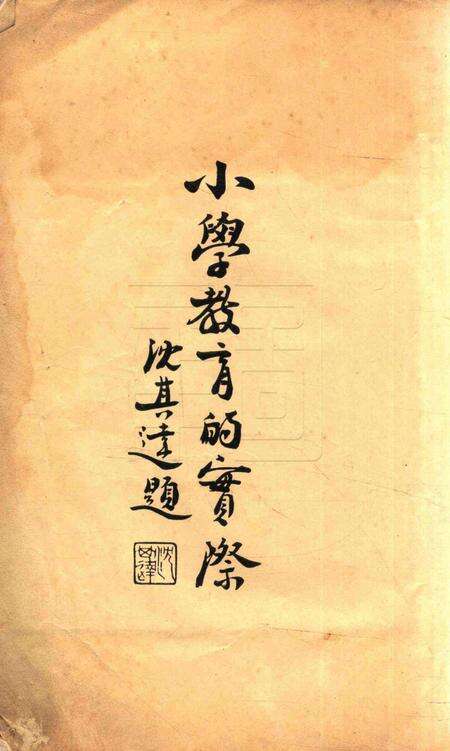 小學教育的實際
沈其達題